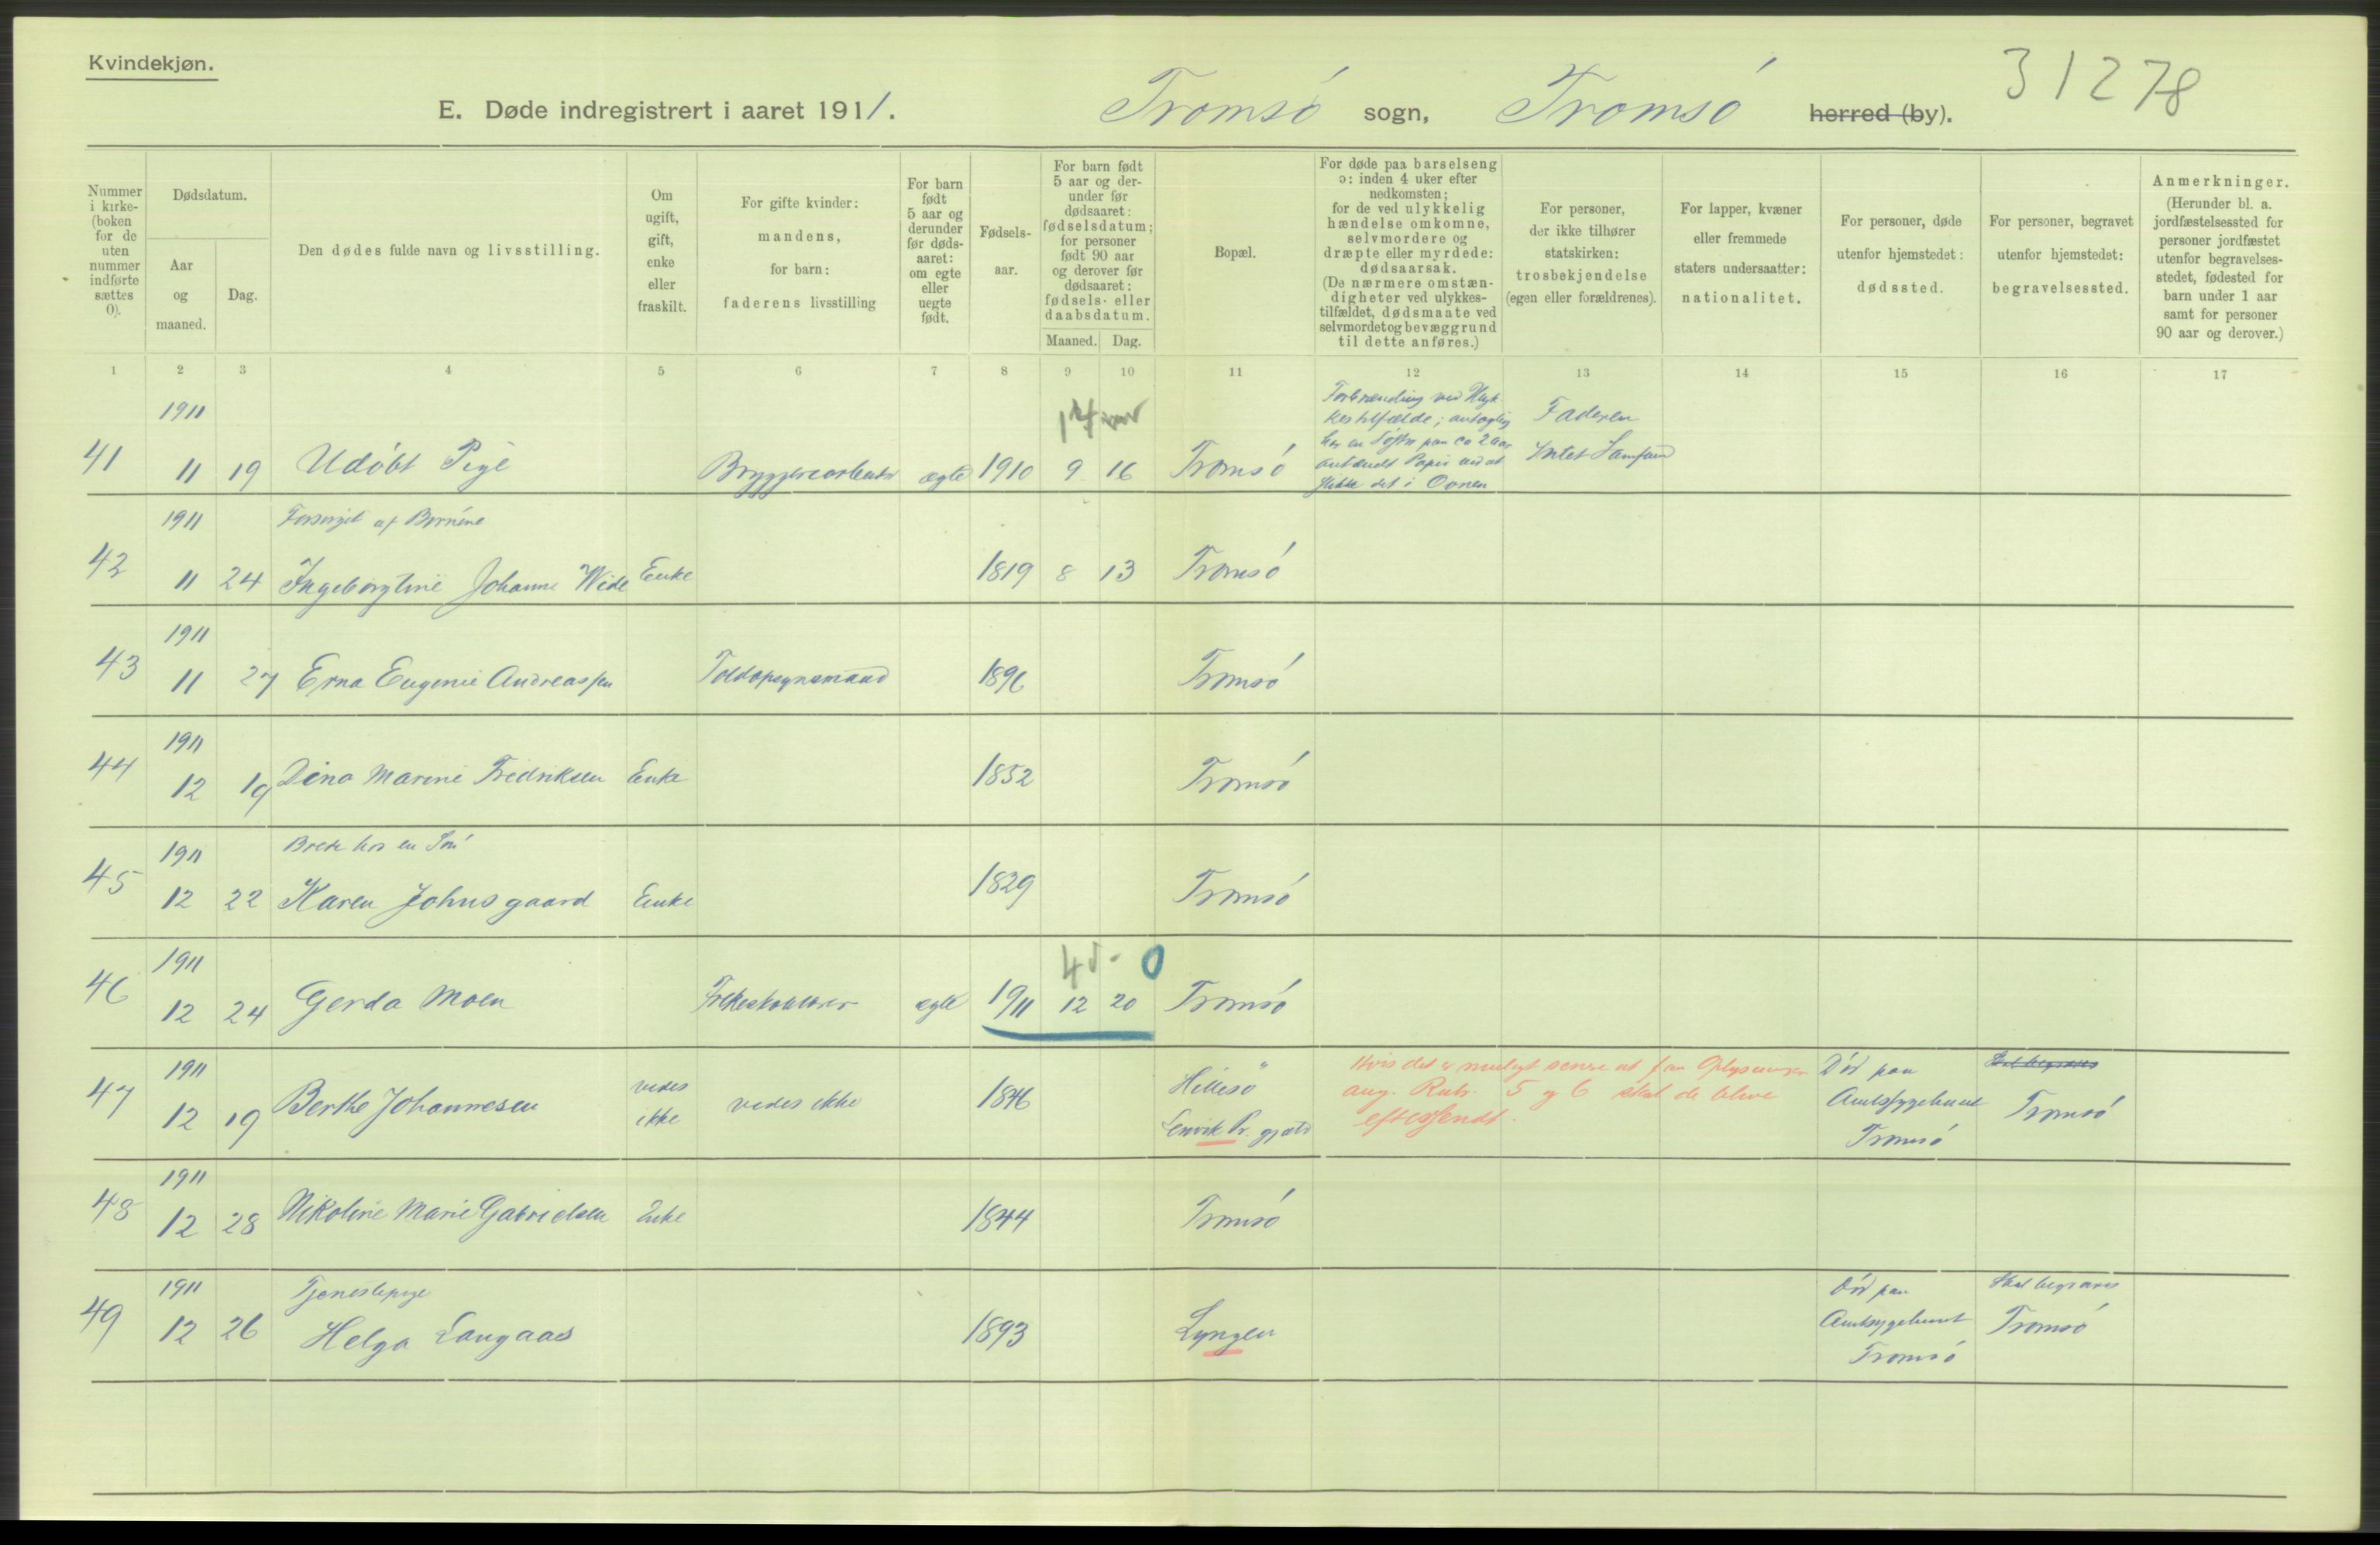 Kvindekjøn.
E. Døde indregistrert i aaret 1911.
Tromsó sogn, Tromsó herred (by).
31278
Nummer
i kirke-
(boken
for de
uten
nummer
indførte
sættes
0).
Dødsdatum.
Aar
og
maaned.
Dag.
Den dødes fulde navn og livsstilling.
Om
ugift,
gift,
enke
eller
fraskilt.
For gifte kvinder:
mandens,
for barn:
faderens livsstilling
For barn
født
5 aar og
derunder
før døds-
aaret:
om egte
eller
uegte
født.
Fødsels-
aar.
For barn født
5 aar og der-
under før
dødsaaret:
fødselsdatum;
for personer
født 90 aar
og derover før
dødsaaret:
fødsels- eller
daabsdatum.
Maaned. Dag.
Bopæl.
For døde paa barselseng
ɔ: inden 4 uker efter
nedkomsten;
for de ved ulykkelig
hændelse omkomne,
selvmordere og
dræpte eller myrdede:
dødsaarsak.
(De nærmere omstæn-
digheter ved ulykkes-
tilfældet, dødsmaate ved
selvmord et og bevæggrund
til dette anføres.)
For personer,
der ikke tilhører
statskirken:
trosbekjendelse
(egen eller forældrenes).
For lapper, kvæner
eller fremmede
staters undersaatter:
nationalitet.
For personer, døde
utenfor hjemstedet:
dødssted.
For personer, begravet
utenfor hjemstedet:
begravelsessted.
Anmerkninger.
(Herunder bl. a.
jordfæstelsessted for
personer jordfæstet
utenfor begravelses-
stedet, fødested for
barn under 1 aar
samt for personer
90 aar og derover.)
1 2 3 4 5 6 7 8 9 10 11 12 13 14 15 16 17
1911
41 11 19 Udóbt Pige Bryggeriarbeider ægte 1910 9 16 Tromsó
Forbrænding ved Ulyk-
kestilfælde; antagelig
har en Søster paa ca 2 aar
antændt Papir ved at
stikke det i Ovnen
Faderen
Intet Samfund
1911 Forsørget af Børnene
42 11 24 Ingeborgtine Johanne Wide Enke 1819 8 13 Tromsó
1911
43 11 27 Erna Eugenie Andreassen Toldopsynsmand 1896 Tromsó
1911
44 12 19 Dina Marine Fredriksen Enke 1852 Tromsó
1911 hos en Són
45 12 22 Karen Johnsgaard Enke 1829 Tromsó
1911 4 0
46 12 24 Gerda Moen Folkeskolelærer ægte 1911 12 20 Tromsó
1911
47 12 19 Berthe Johannesen vides ikke vides ikke 1846
Hillesö
Lenvik Pr. gjæld
Hvis det er muligt senere at faa Oplysninger
ang. Rubr. 5 og 6 skal de blive
eftersendt.
Dód paa
Amtssygehuset
Tromsó
Skal begraves
Tromsó
1911
48 12 28 Nikoline Marie Gabrielsen Enke 1844 Tromsó
1911 Tjenestepige
49 12 26 Helga Langaas 1893 Lyngen
Dód paa
Amtssygehuset
Tromsó
Skal begraves
Tromsó